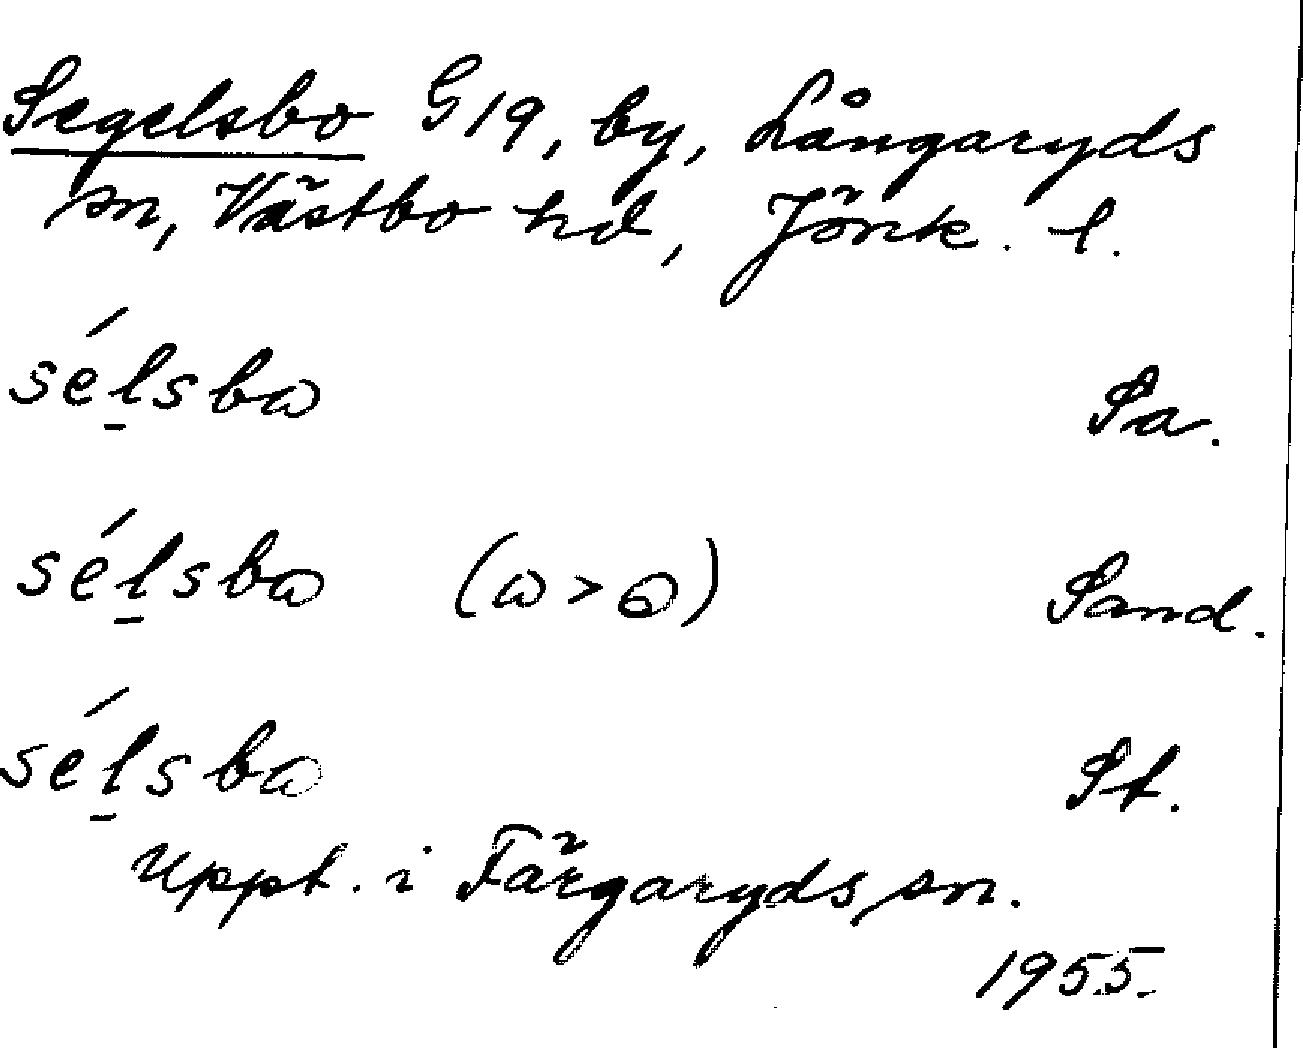 Segelsbo G19, by, Långaryds
sn, Västbo hd, Jönk. l.
sé̱lsbω Sa.
sé̱lsbω (ω > ɷ) Sand.
sé̱lsbω St.
Uppt. i Färgaryds sn.
1955.